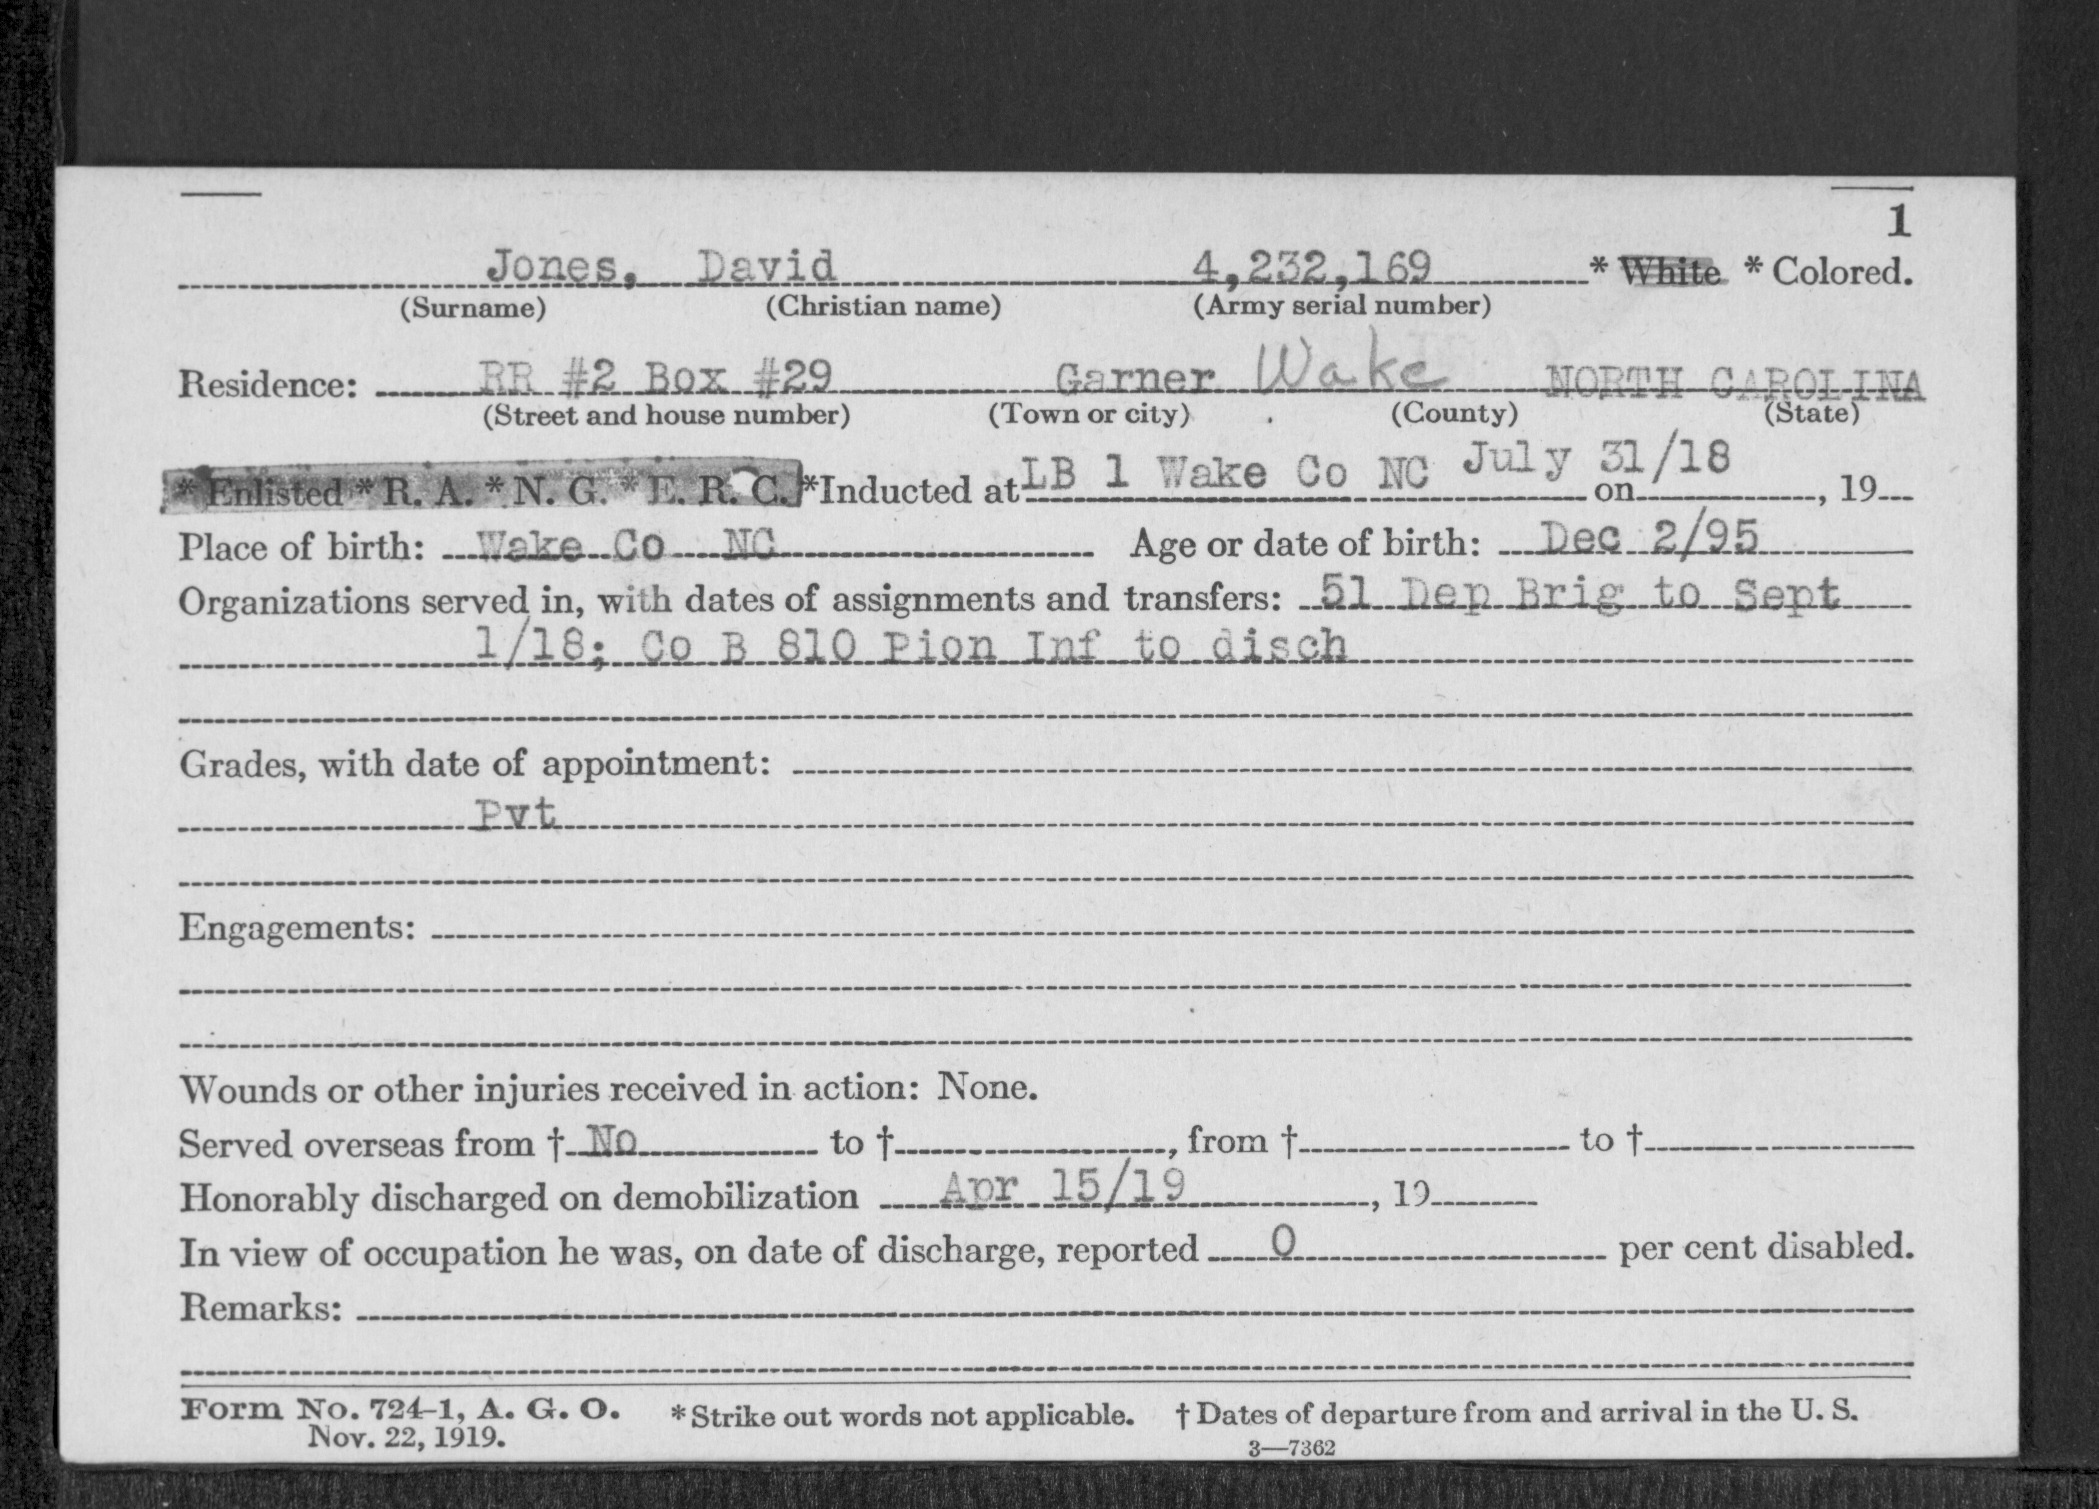 1
Jones, David 4,232,169 * White * Colored.
(Surname) (Christian name) (Army serial number)
Residence: RR #2 Box #29 Garner Wake NORTH CAROLINA
(Street and house number) (Town or city) (County) (State)
* Enlisted * R. A. * N. G. * E. R. C. *Inducted at LB 1 Wake Co NC on July 31/18, 19
Place of birth: Wake Co NC Age or date of birth: Dec 2/95
Organizations served in, with dates of assignments and transfers: 51 Dep Brig to Sept
1/18; Co B 810 Pion Inf to disch
Grades, with date of appointment:
Pvt
Engagements:
Wounds or other injuries received in action: None.
Served overseas from † No to †, from † to †
Honorably discharged on demobilization Apr 15/19, 19
In view of occupation he was, on date of discharge, reported 0 per cent disabled.
Remarks:
Form No. 724-1, A. G. O. *Strike out words not applicable. † Dates of departure from and arrival in the U. S.
Nov. 22, 1919. 3—7362